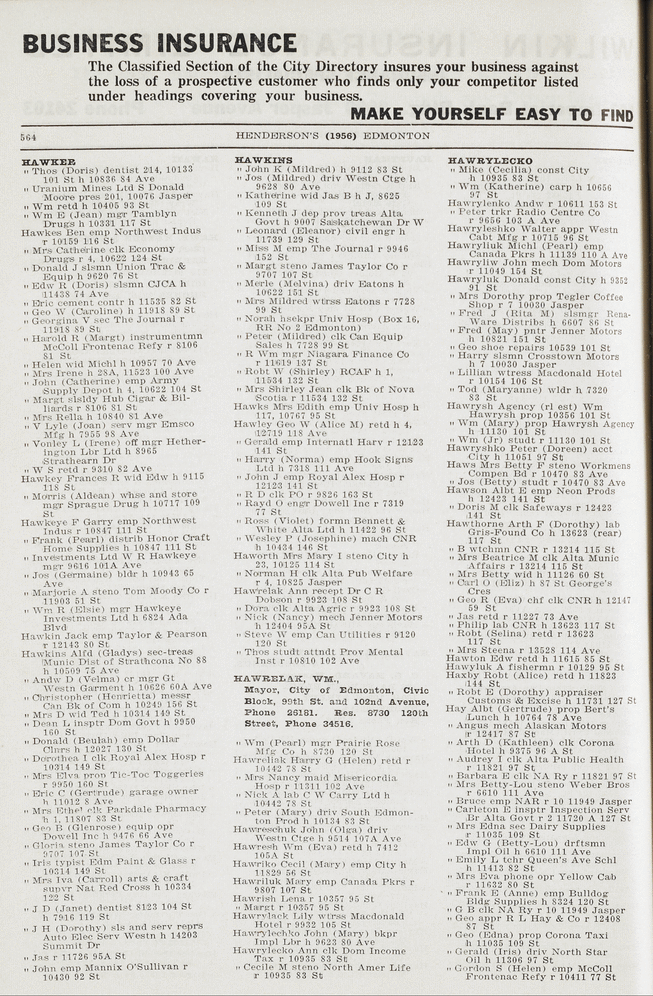 BUSINESS INSURANCE
The Classified Section of the City Directory insures your business against
the loss of a prospective customer who finds only your competitor listed
under headings covering your business.
MAKE YOURSELF EASY TO FIND
564
HENDERSON'S (1956) EDMONTON
HAWKER
" Thos (Doris) dentist 214, 10133
101 St h 10836 84 Ave
" Uranium Mines Ltd S Donald
Moore pres 201, 10076 Jasper
" Wm retd h 10405 93 St
" Wm E (Jean) mgr Tamblyn
Drugs h 10331 117 St
Hawkes Ben emp Northwest Indus
r 10159 116 St
" Mrs Catherine clk Economy
Drugs r 4, 10622 124 St
" Donald J slsmn Union Trac &
Equip h 9620 76 St
" Edw R (Doris) slsmn CJCA h
11438 74 Ave
" Eric cement contr h 11535 82 St
" Geo W (Caroline) h 11918 89 St
" Georgina V sec The Journal r
11918 89 St
" Harold R (Margt) instrumentmn
McColl Frontenac Refy r 8106
81 St
" Helen wid Michl h 10957 70 Ave
" Mrs Irene h 28A, 11523 100 Ave
" John (Catherine) emp Army
Supply Depot h 4, 10622 104 St
" Margt slsldy Hub Cigar & Bil-
liards r 8106 81 St
" Mrs Rella h 10840 81 Ave
" V Lyle (Joan) serv mgr Emsco
Mfg h 7955 98 Ave
" Vonley L (Irene) off mgr Hether-
ington Lbr Ltd h 8965
Strathearn Dr
" W S retd r 9310 82 Ave
Hawkey Frances R wid Edw h 9115
118 St
" Morris (Aldean) whse and store
mgr Sprague Drug h 10717 109
St
Hawkeye F Garry emp Northwest
Indus r 10847 111 St
" Frank (Pearl) distrib Honor Craft
Home Supplies h 10847 111 St
" Investments Ltd W R Hawkeye
mgr 9616 101A Ave
" Jos (Germaine) bldr h 10943 65
Ave
" Marjorie A steno Tom Moody Co r
11903 51 St
" Wm R (Elsie) mgr Hawkeye
Investments Ltd h 6824 Ada
Blvd
Hawkin Jack emp Taylor & Pearson
r 12143 80 St
Hawkins Alfd (Gladys) sec-treas
Munic Dist of Strathcona No 88
h 10509 75 Ave
" Andw D (Velma) cr mgr Gt
Westn Garment h 10626 60A Ave
" Christopher (Henrietta) messr
Can Bk of Com h 10249 156 St
" Mrs D wid Ted h 10314 149 St
" Dean L insptr Dom Govt h 9950
160 St
" Donald (Beulah) emp Dollar
Clnrs h 12027 130 St
" Dorothea I clk Royal Alex Hosp r
10314 149 St
" Mrs Elva prop Tic-Toc Toggeries
r 9950 160 St
" Eric C (Gertrude) garage owner
h 11012 8 Ave
" Mrs Ethel clk Parkdale Pharmacy
h 1, 11807 83 St
" Geo B (Glenrose) equip opr
Dowell Inc h 9476 66 Ave
" Gloria steno James Taylor Co r
9707 107 St
" Iris typist Edm Paint & Glass r
10314 149 St
" Mrs Iva (Carroll) arts & craft
supvr Nat Red Cross h 10334
122 St
" J D (Janet) dentist 8123 104 St
h 7916 119 St
" J H (Dorothy) sls and serv reprs
Auto Elec Serv Westn h 14203
Summit Dr
" Jas r 11726 95A St
" John emp Mannix O'Sullivan r
10430 92 St
HAWKINS
" John K (Mildred) h 9112 83 St
" Jos (Mildred) driv Westn Ctge h
9628 80 Ave
" Katherine wid Jas B h J, 8625
109 St
" Kenneth J dep prov treas Alta
Govt h 9007 Saskatchewan Dr W
" Leonard (Eleanor) civil engr h
11739 129 St
" Miss M emp The Journal r 9946
152 St
" Margt steno James Taylor Co r
9707 107 St
" Merle (Melvina) driv Eatons h
10622 151 St
" Mrs Mildred wtrss Eatons r 7728
99 St
" Norah hsekpr Univ Hosp (Box 16,
RR No 2 Edmonton)
" Peter (Mildred) clk Can Equip
Sales h 7728 99 St
" R Wm mgr Niagara Finance Co
r 11619 137 St
" Robt W (Shirley) RCAF h 1,
11534 132 St
" Mrs Shirley Jean clk Bk of Nova
Scotia r 11534 132 St
Hawks Mrs Edith emp Univ Hosp h
117, 10767 95 St
Hawley Geo W (Alice M) retd h 4,
12719 118 Ave
" Gerald emp Internatl Harv r 12123
141 St
" Harry (Norma) emp Hook Signs
Ltd h 7318 111 Ave
" John J emp Royal Alex Hosp r
12123 141 St
" R D clk PO r 9826 163 St
" Rayd O engr Dowell Inc r 7319
77 St
" Ross (Violet) formn Bennett &
White Alta Ltd h 11422 96 St
" Wesley P (Josephine) mach CNR
h 10434 146 St
Haworth Mrs Mary I steno City h
23, 10125 114 St
" Norman H clk Alta Pub Welfare
r 4, 10825 Jasper
Hawrelak Ann recept Dr C R
Dobson r 9923 108 St
" Dora clk Alta Agric r 9923 108 St
" Nick (Nancy) mech Jenner Motors
h 12404 95A St
" Steve W emp Can Utilities r 9120
120 St
" Thos studt attndt Prov Mental
Inst r 10810 102 Ave
HAWRELAK, WM.,
Mayor, City of Edmonton, Civic
Block, 99th St. and 102nd Avenue,
Phone 26181. Res. 8730 120th
Street, Phone 34516.
" Wm (Pearl) mgr Prairie Rose
Mfg Co h 8730 120 St
Hawreliak Harry G (Helen) retd r
10442 78 St
" Mrs Nancy maid Misericordia
Hosp r 11311 102 Ave
" Nick A lab C W Carry Ltd h
10442 78 St
" Peter (Mary) driv South Edmon-
ton Prod h 10134 83 St
Hawreschuk John (Olga) driv
Westn Ctge h 9514 107A Ave
Hawresh Wm (Eva) retd h 7412
105A St
Hawriko Cecil (Mary) emp City h
11829 56 St
Hawriluk Mary emp Canada Pkrs r
9807 107 St
Hawrish Lena r 10357 95 St
" Margt r 10357 95 St
Hawrylack Lily wtrss Macdonald
Hotel r 9932 105 St
Hawrylechko John (Mary) bkpr
Impl Lbr h 9623 80 Ave
Hawrylecko Ann clk Dom Income
Tax r 10935 83 St
" Cecile M steno North Amer Life
r 10935 83 St
HAWRYLECKO
" Mike (Cecilia) const City
h 10935 83 St
" Wm (Katherine) carp h 10656
97 St
Hawrylenko Andw r 10611 153 St
" Peter trkr Radio Centre Co
r 9656 103 A Ave
Hawryleshko Walter appr Westn
Cabt Mfg r 10715 96 St
Hawryliuk Michl (Pearl) emp
Canada Pkrs h 11139 110 A Ave
Hawryliw John mech Dom Motors
r 11049 154 St
Hawryluk Donald const City h 9352
91 St
" Mrs Dorothy prop Tegler Coffee
Shop r 7 10030 Jasper
" Fred J (Rita M) slsmgr Rena-
Ware Distribs h 6607 86 St
" Fred (May) pntr Jenner Motors
h 10821 151 St
" Geo shoe repairs 10539 101 St
" Harry slsmn Crosstown Motors
h 7 10030 Jasper
" Lillian wtress Macdonald Hotel
r 10154 106 St
" Tod (Maryanne) wldr h 7320
83 St
Hawrysh Agency (rl est) Wm
Hawrysh prop 10356 101 St
" Wm (Mary) prop Hawrysh Agency
h 11130 101 St
" Wm (Jr) studt r 11130 101 St
Hawryshko Peter (Doreen) acct
h 11051 97 St
Haws Mrs Betty F steno Workmens
Compen Bd r 10470 83 Ave
" Jos (Betty) studt r 10470 83 Ave
Hawson Albt E emp Neon Prods
h 12423 141 St
" Doris M clk Safeways r 12423
141 St
Hawthorne Arth F (Dorothy) lab
Gris-Found Co h 13623 (rear)
117 St
" B wtchmn CNR r 13214 115 St
" Mrs Beatrice M clk Alta Munic
Affairs r 13214 115 St
" Mrs Betty wid h 11126 60 St
" Carl O (Eliz) h 87 St George's
Cres
" Geo R (Eva) chf clk CNR h 12147
59 St
" Jas retd r 11227 73 Ave
" Philip lab CNR h 13623 117 St
" Robt (Selina) retd r 13623
117 St
" Mrs Steena r 13528 114 Ave
Hawton Edw retd h 11615 85 St
Hawyluk A fishermn r 10129 95 St
Haxby Robt (Alice) retd h 11823
144 St
" Robt E (Dorothy) appraiser
Customs & Excise h 11731 127 St
Hay Albt (Gertrude) prop Bert's
Lunch h 10764 78 Ave
" Angus mech Alaskan Motors
r 12417 87 St
" Arth D (Kathleen) clk Corona
Hotel h 9375 96 A St
" Audrey I clk Alta Public Health
r 11821 97 St
" Barbara E clk NA Ry r 11821 97 St
" Mrs Betty-Lou steno Weber Bros
r 6610 111 Ave
" Bruce emp NAR r 10 11949 Jasper
" Carleton E insptr Inspection Serv
Br Alta Govt r 2 11720 A 127 St
" Mrs Edna sec Dairy Supplies
r 11035 109 St
" Edw G (Betty-Lou) drftsmn
Impl Oil h 6610 111 Ave
" Emily L tchr Queen's Ave Schl
h 11413 82 St
" Mrs Eva phone opr Yellow Cab
r 11632 80 St
" Frank E (Anne) emp Bulldog
Bldg Highways h 8324 120 St
" G B clk NA Ry r 10 11949 Jasper
" Geo appr R L Hay & Co r 12408
87 St
" Geo (Edna) prop Corona Taxi
h 11035 109 St
" Gerald (Iris) driv North Star
Oil h 11306 97 St
" Gordon S (Helen) emp McColl
Frontenac Refy r 10411 77 St